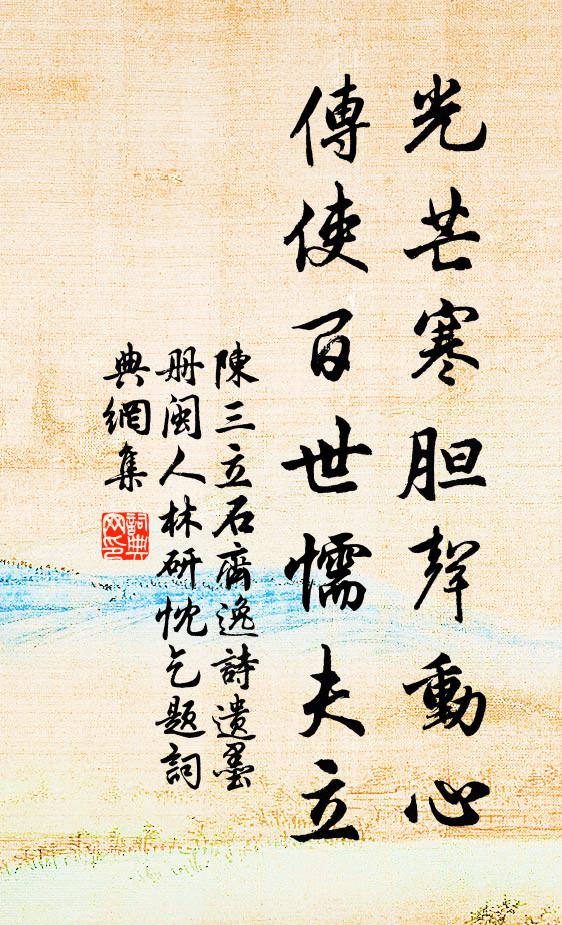 光芒寒胆聲動心
傳使百世懦夫立
陳三立石齋逸詩遺墨
册閩人林研忱乞題詞
典網集
詞典
网印